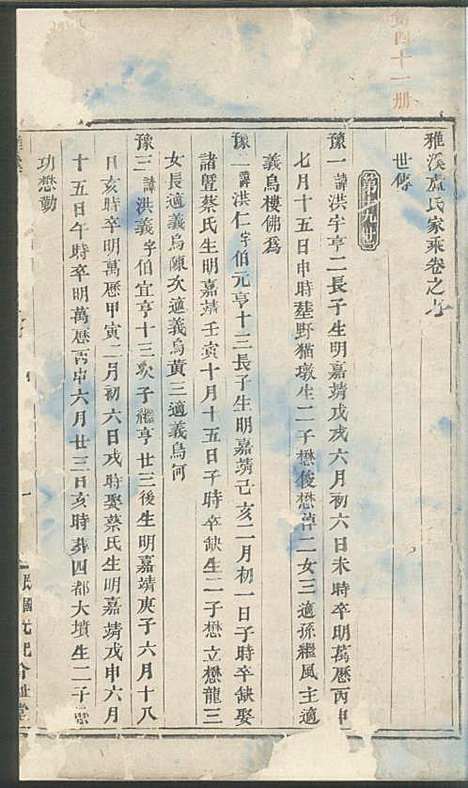 第四十一册
雅溪盧氏家乘卷之
世傳
第十九世
豫一諱洪宇亨二長子生明嘉靖戊戌六月初六日未時卒明萬曆丙申
七月十五日申時塟野猫墩生二子懋俊懋焯二女三適孫繼風主適
義烏樓佛爲
豫二諱洪仁字伯元亨十三長子生明嘉靖己亥二月初一日子時卒缺娶
諸暨蔡氏生明嘉靖壬寅十月十五日子時卒缺生二子懋立懋龍三
女長適義烏陳次適義烏黃三適義烏何
豫三諱洪義字伯宜亨十三次子繼亨廿三後生明嘉靖庚子六月十八
日亥時卒明萬曆甲寅二月初六日戌時娶蔡氏生明嘉靖戊申六月
十五日午時卒明萬曆丙申六月廿三日亥時葬四都大墳生二子懋
功懋勤
民國元祀合